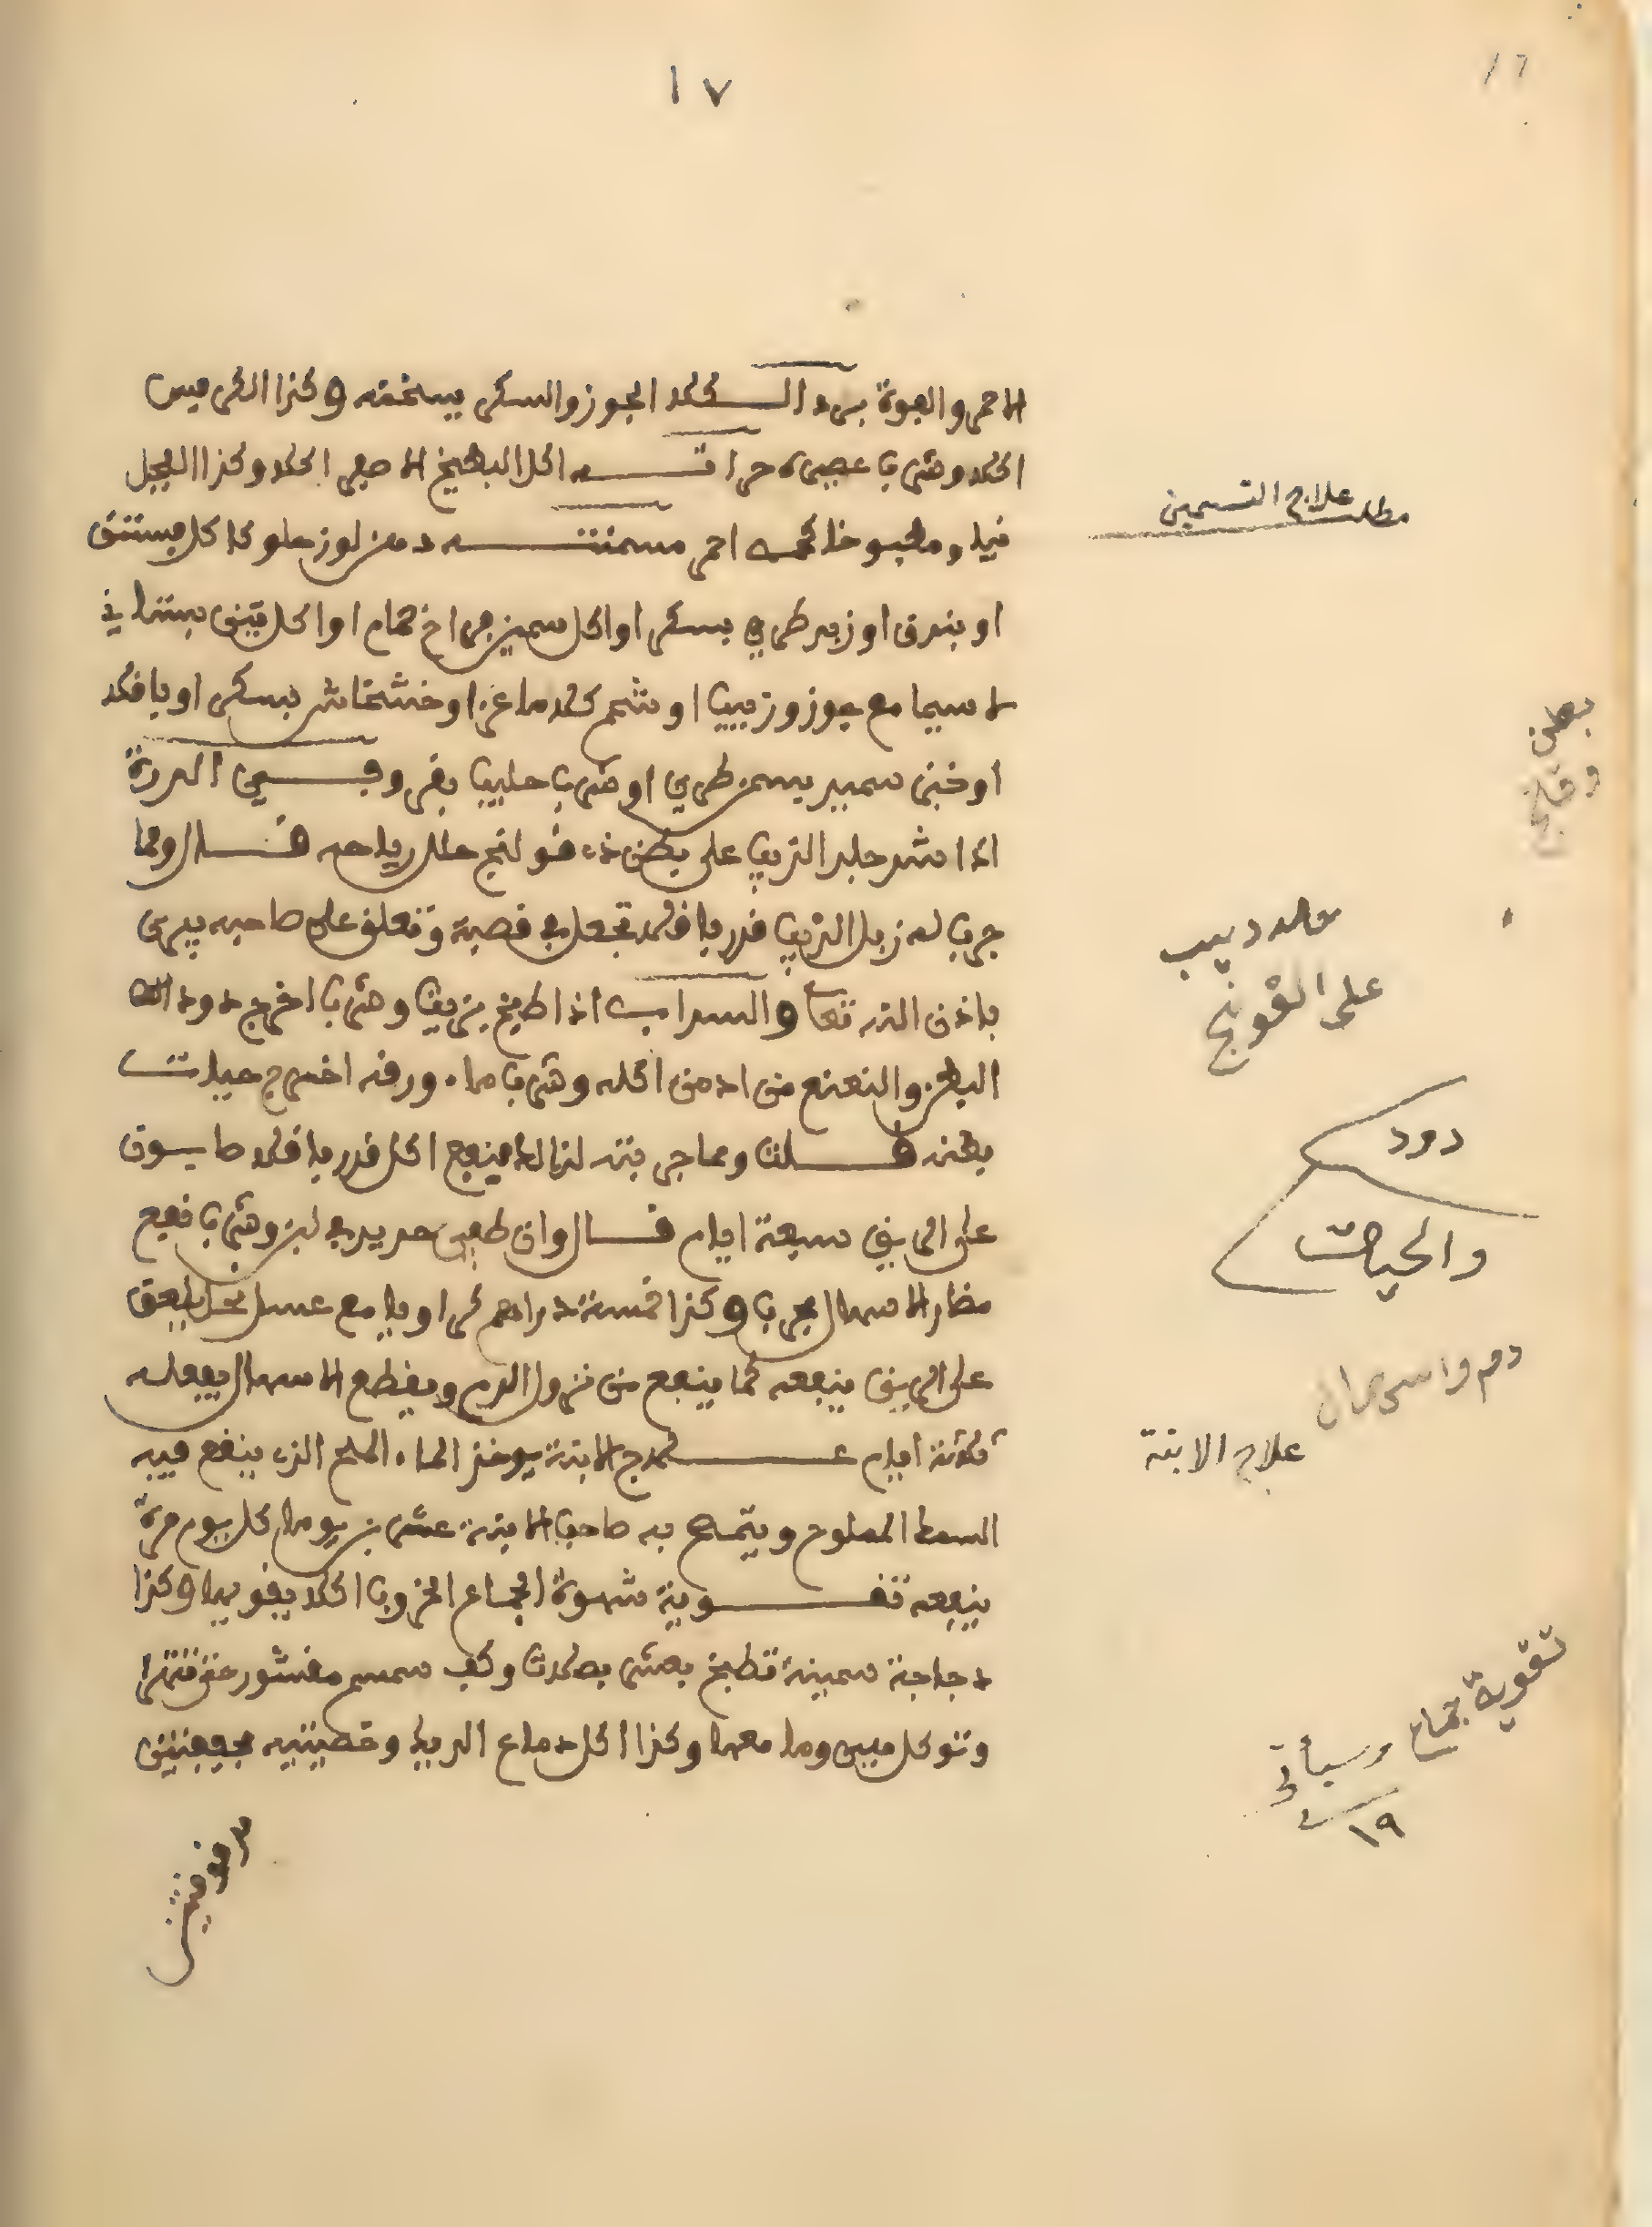 ١٧
١٦
الاحمر والعجوة برد الكلا اكل الجوز والسكر يسخنه وكذا الكرفس
اكلا وشربا عصيره حراقته اكل البطيخ الاصفر اكلا وكذا الفجل
نيا ومطبوخا لحمه احمر مسمنته دهن لوز حلو كاكل فستق
او بندق او زبد طري بسكر او اكل سمين فراخ حمام او اكل تين بستاني
لا سيما مع جوز وزبيب او شحم كلا ماعز او خشخاش بسكر او باقلا
او خبز سميد بسمن طري او شرب حليب بقر وفي الدرة
اذا شد جلد الذيب على بطن ذي قولنج حلل رياحه قال ومما
جرب له زبل الذيب قدر باقلا تجعل في قصبة وتعلق على صاحبه يبرئ
باذن الله تعا والسداب اذا طبخ بزيت وشرب اخرج دود
البطن والنعنع من ادمن اكله وشرب ماء ورقه اخرج حيات
بطنه قلت ومما جربته لنا لها فينفع اكل قدر باقلا صابون
على الريق سبعة ايام قال وان طفي حديد في لبن وشرب نفع
مضار الاسهال مجرب وكذا خمسة دراهم كراويا مع عسل نحل يلعق
على الريق ينفعه كما ينفع من نزول الدم ويقطع الاسهال يفعله
ثلاثة ايام علاج الابنة يوخذ الماء الملح الذي ينقع فيه
السمك المملوح ويتمسح به صاحب الابنة عشرين يوما كل يوم مرة
ينفعه تقوية شهوة الجماع الخروب اكلا يقويها وكذا
دجاجة سمينة تطبخ بعشر بصلات وكف سمسم مقشور حتى تتهرا
وتوكل هي وما معها وكذا اكل دماغ الديك وخصيتيه
مطلب علاج التسمين
بطن
وقلنج
جلد ديب
على القونج
دود
والحيات
دم واسهال
علاج الابنة
تقوية جماع وسيأتي
في ١٩